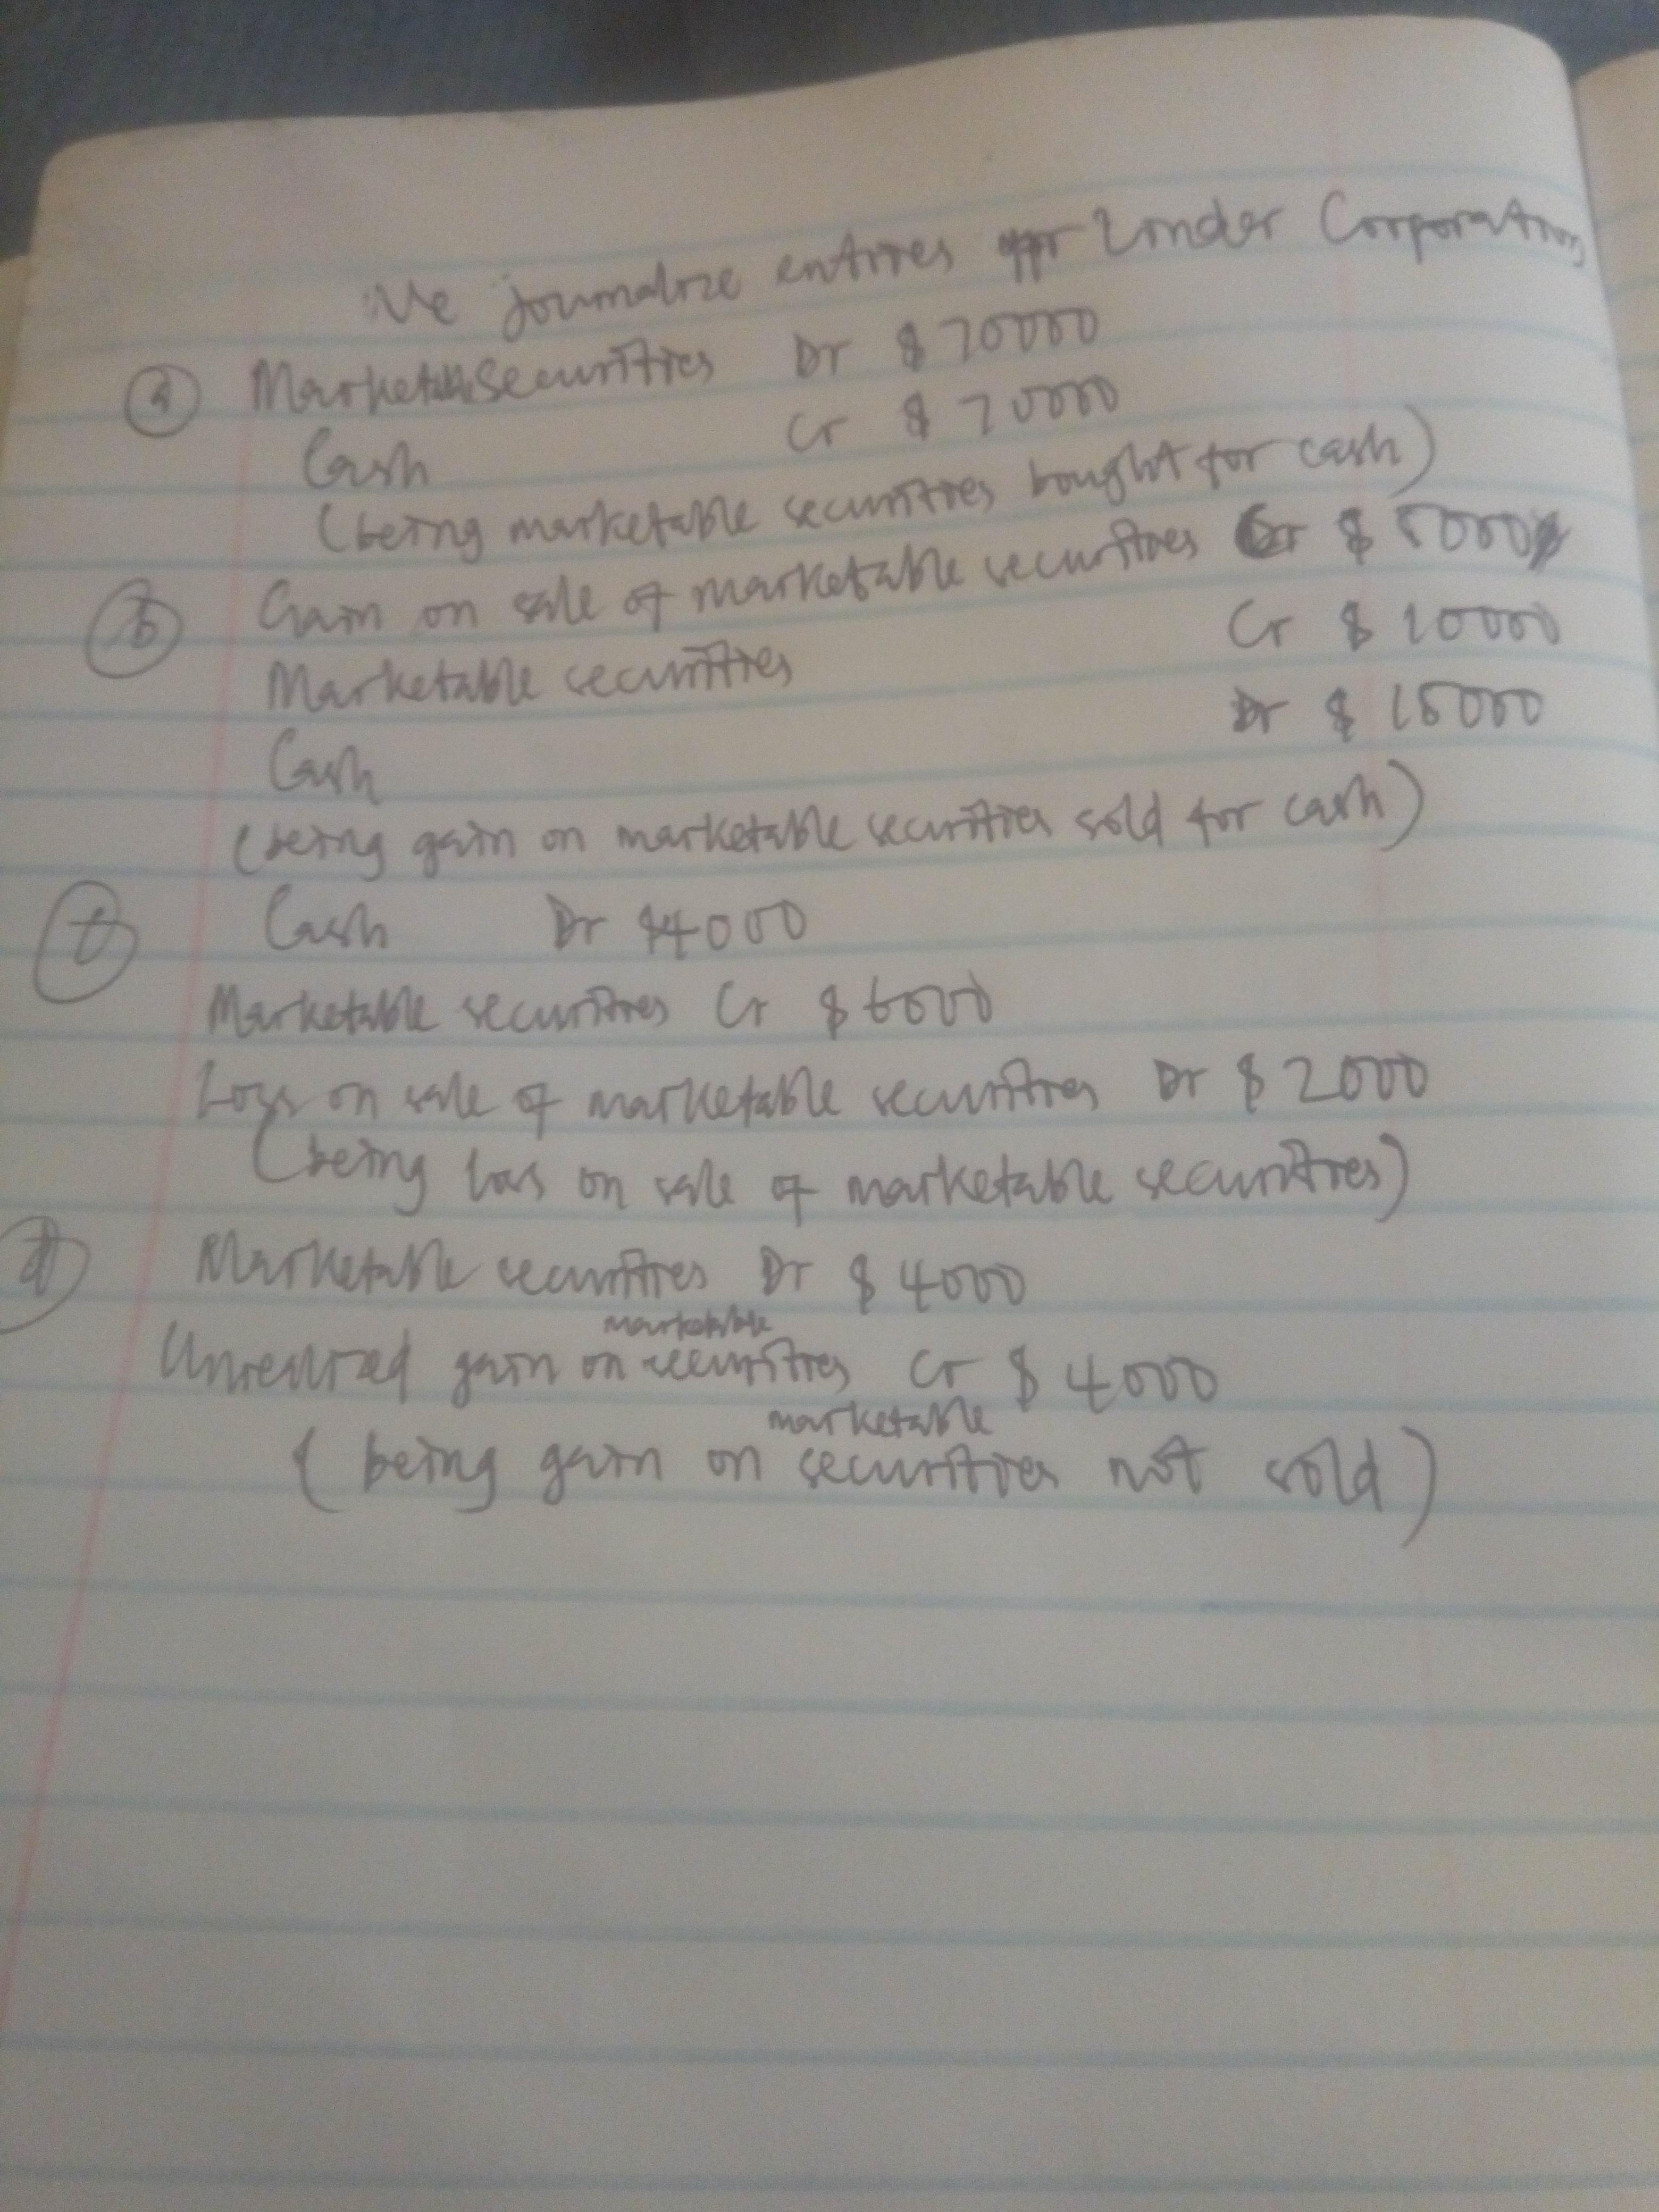 We journalize entries for Zonder Corporation
(a) Marketable Securities Dr $ 70000
Cash Cr $ 70000
(being marketable securities bought for cash)
(b) Gain on sale of marketable securities Cr $ 5000
Marketable securities Cr $ 10000
Cash Dr $ 15000
(being gain on marketable securities sold for cash)
(c) Cash Dr $4000
Marketable securities Cr $ 6000
Loss on sale of marketable securities Dr $ 2000
(being loss on sale of marketable securities)
(d) Marketable securities Dr $ 4000
Unrealized gain on marketable securities Cr $ 4000
(being gain on marketable securities not sold)